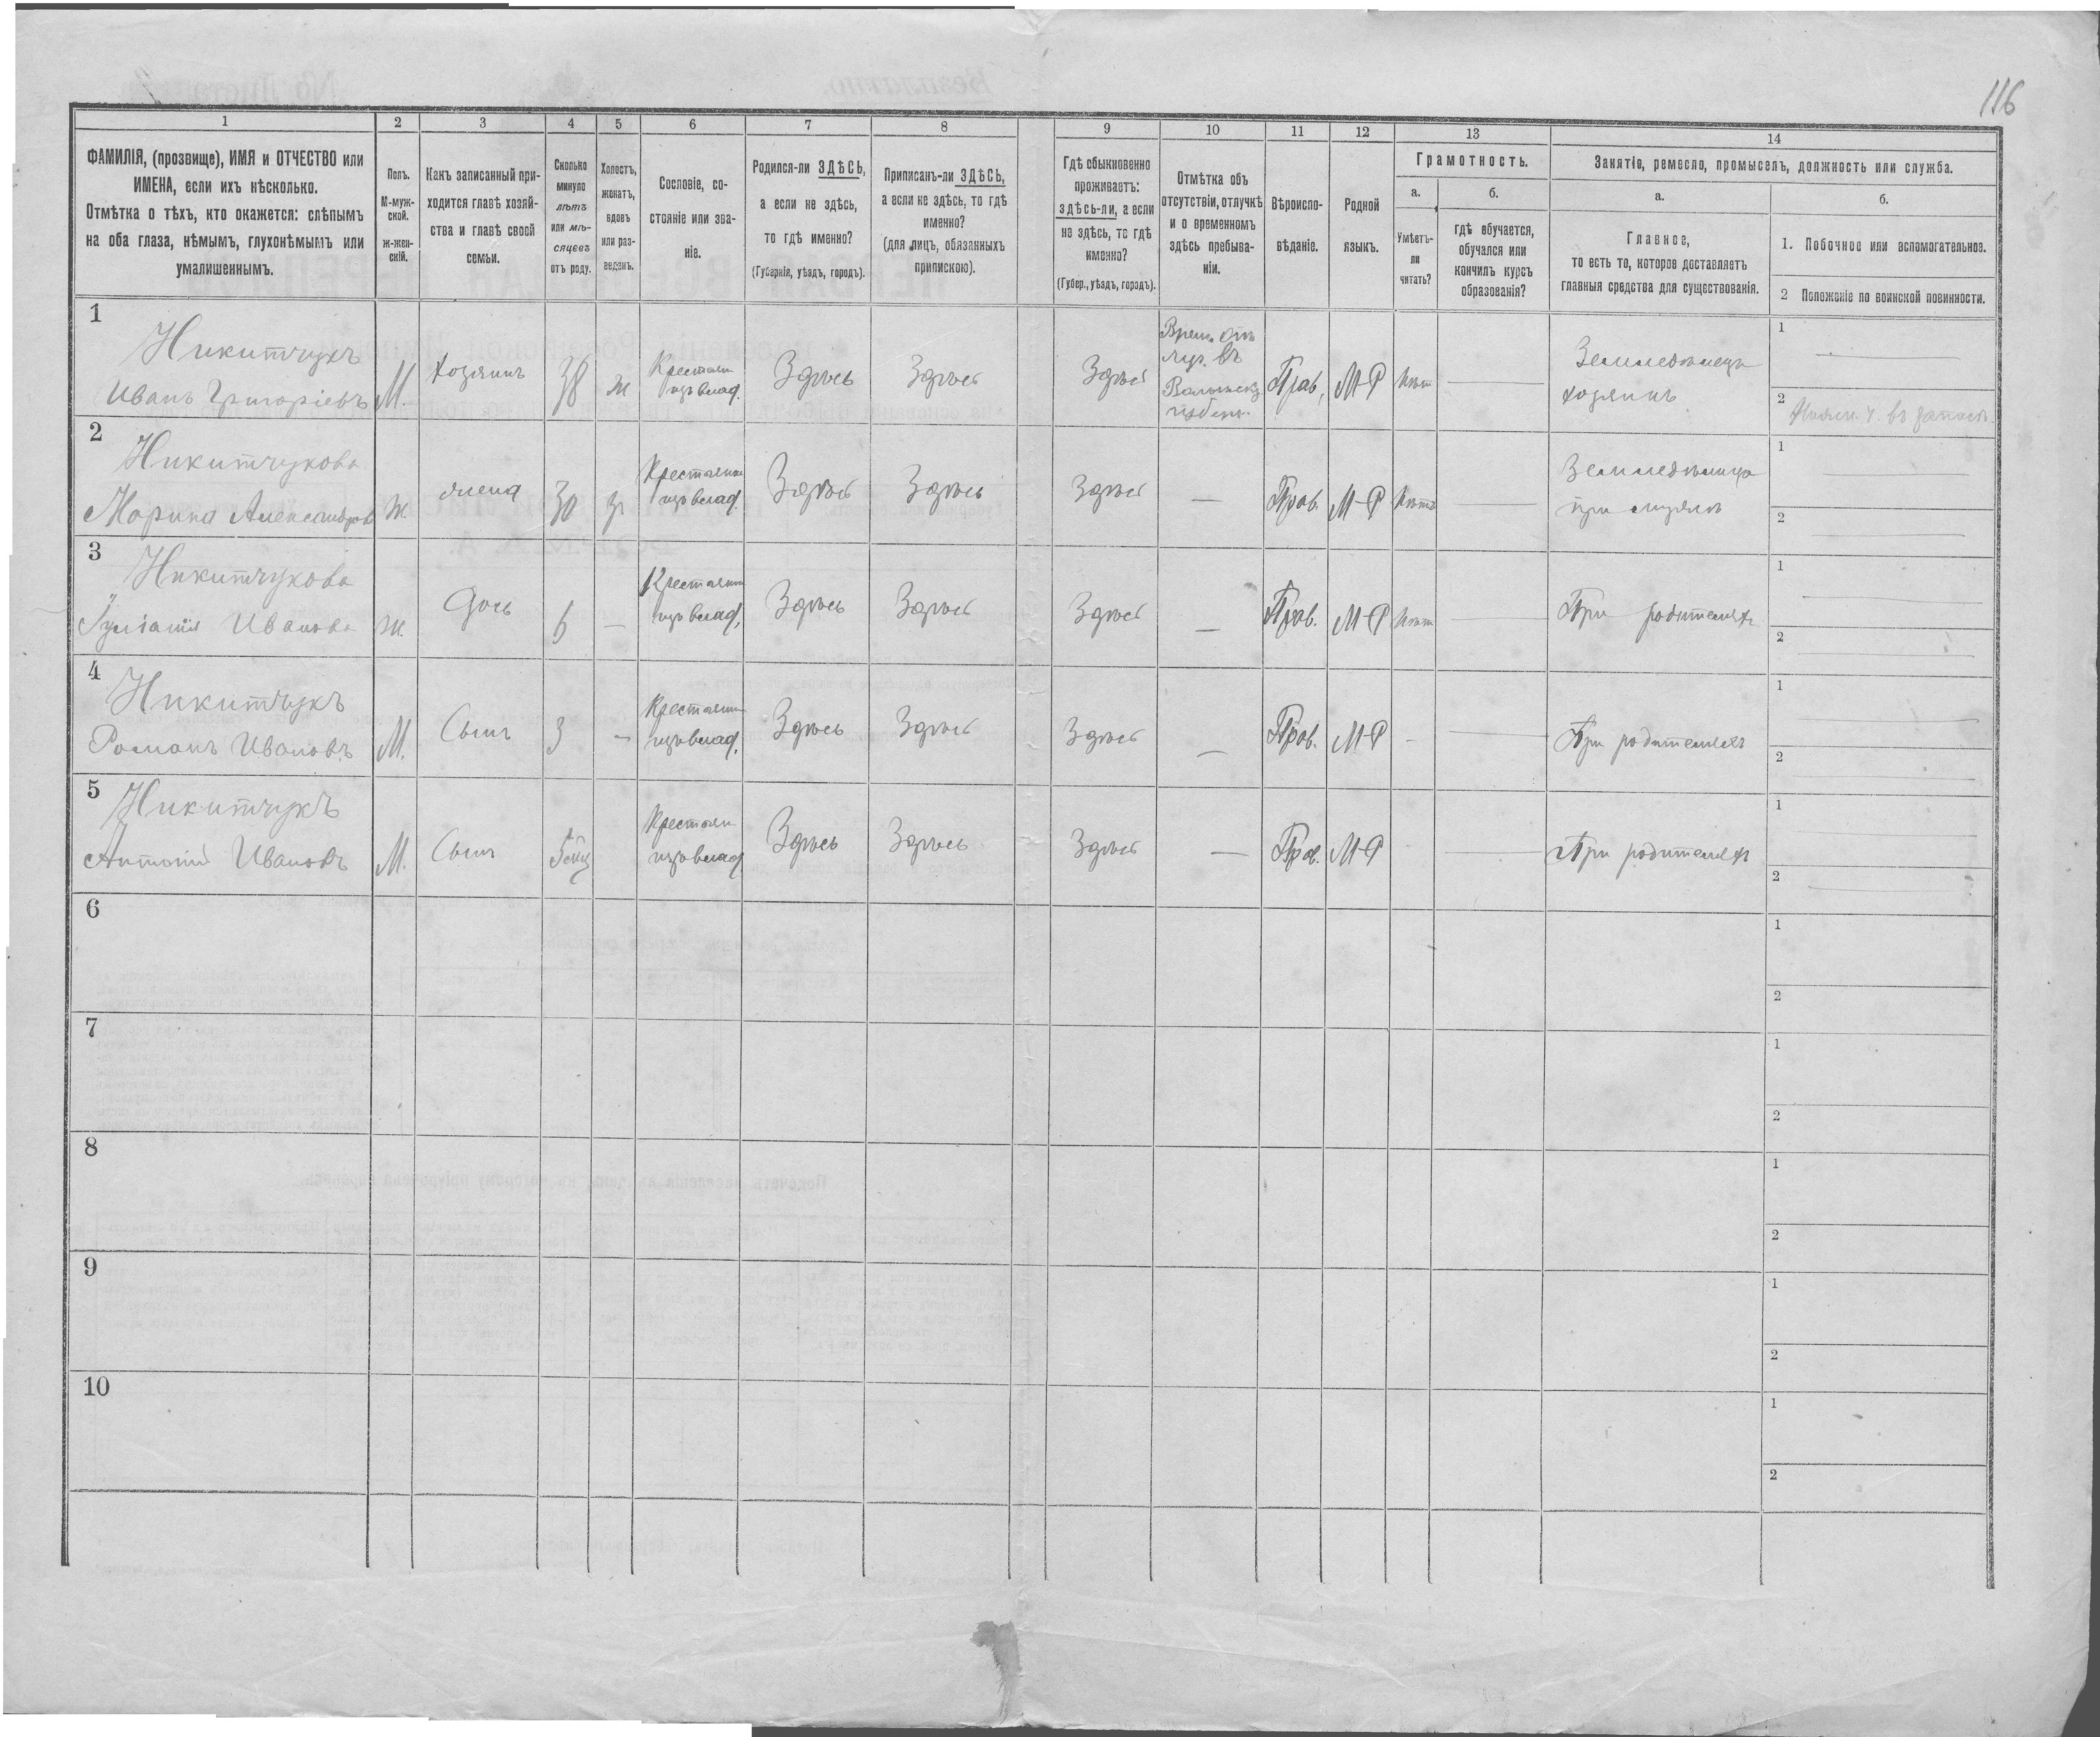 116
1 2 3 4 5 6 7 8 9 10 11 12 13 14
ФАМИЛІЯ, (прозвище), ИМЯ и ОТЧЕСТВО или
ИМЕНА, если ихъ нѣсколько.
Отмѣтка о тѣхъ, кто окажется: слѣпымъ
на оба глаза, нѣмымъ, глухонѣмымъ или
умалишеннымъ.
Полъ.
М-муж-
ской.
ж-жен-
скій.
Какъ записанный при-
ходится главѣ хозяй-
ства и главѣ своей
семьи.
Сколько
минуло
лѣтъ
или мѣ-
сяцевъ
отъ роду.
Холостъ,
женатъ,
вдовъ
или раз-
веденъ.
Сословіе, со-
стояніе или зва-
ніе.
Родился-ли ЗДѢСЬ,
а если не здѣсь,
то гдѣ именно?
(Губернія, уѣздъ, городъ).
Приписанъ-ли ЗДѢСЬ,
а если не здѣсь, то гдѣ
именно?
(для лицъ, обязанныхъ
припискою).
Гдѣ обыкновенно
проживаетъ:
здѣсь-ли, а если
не здѣсь, то гдѣ
именно?
(Губер., уѣздъ, городъ).
Отмѣтка объ
отсутствіи, отлучкѣ
и о временномъ
здѣсь пребыва-
ніи.
Вѣроиспо-
вѣданіе.
Родной
языкъ.
Грамотность.
а.
Умѣетъ-
ли
читать?
б.
гдѣ обучается,
обучался или
кончилъ курсъ
образованія?
Занятіе, ремесло, промыселъ, должность или служба.
а.
Главное,
то есть то, которое доставляетъ
главныя средства для существованія.
б.
1. Побочное или вспомогательное.
2 Положеніе по воинской повинности.
1
Никитчукъ
Иванъ Григоріевъ
М.
Хозяинъ
38
ж
Крестьян
изъ влад.
Здѣсь
Здѣсь
Здѣсь
Прав.
М-Р
Нѣт
Земледѣлецъ
хозяинъ
1
2
2
Никитчукова
Марина Александров
ж.
жена
30
Крестьянк
изъ влад.
Здѣсь
Здѣсь
Здѣсь
—
Прав.
М-Р
Нѣтъ
Земледѣлица
при мужѣ
1
2
3
Никитчукова
Іуліанія Иванова
ж.
Дочь
—
Крестьянк
изъ влад.
Здѣсь
Здѣсь
Здѣсь
—
Прав.
М-Р
Нѣт
При родителяхъ
1
2
4
Никитчукъ
Романъ Ивановъ
М.
Сынъ
3
—
Крестьянин
изъ влад.
Здѣсь
Здѣсь
Здѣсь
—
Прав.
М-Р
-
При родителяхъ
1
2
5
Никитчукъ
Антоній Ивановъ
М.
Сынъ
Крестьян
изъ влад
Здѣсь
Здѣсь
Здѣсь
—
Прав.
М-Р
При родителяхъ
1
2
6
1
2
7
1
2
8
1
2
9
1
2
10
1
2